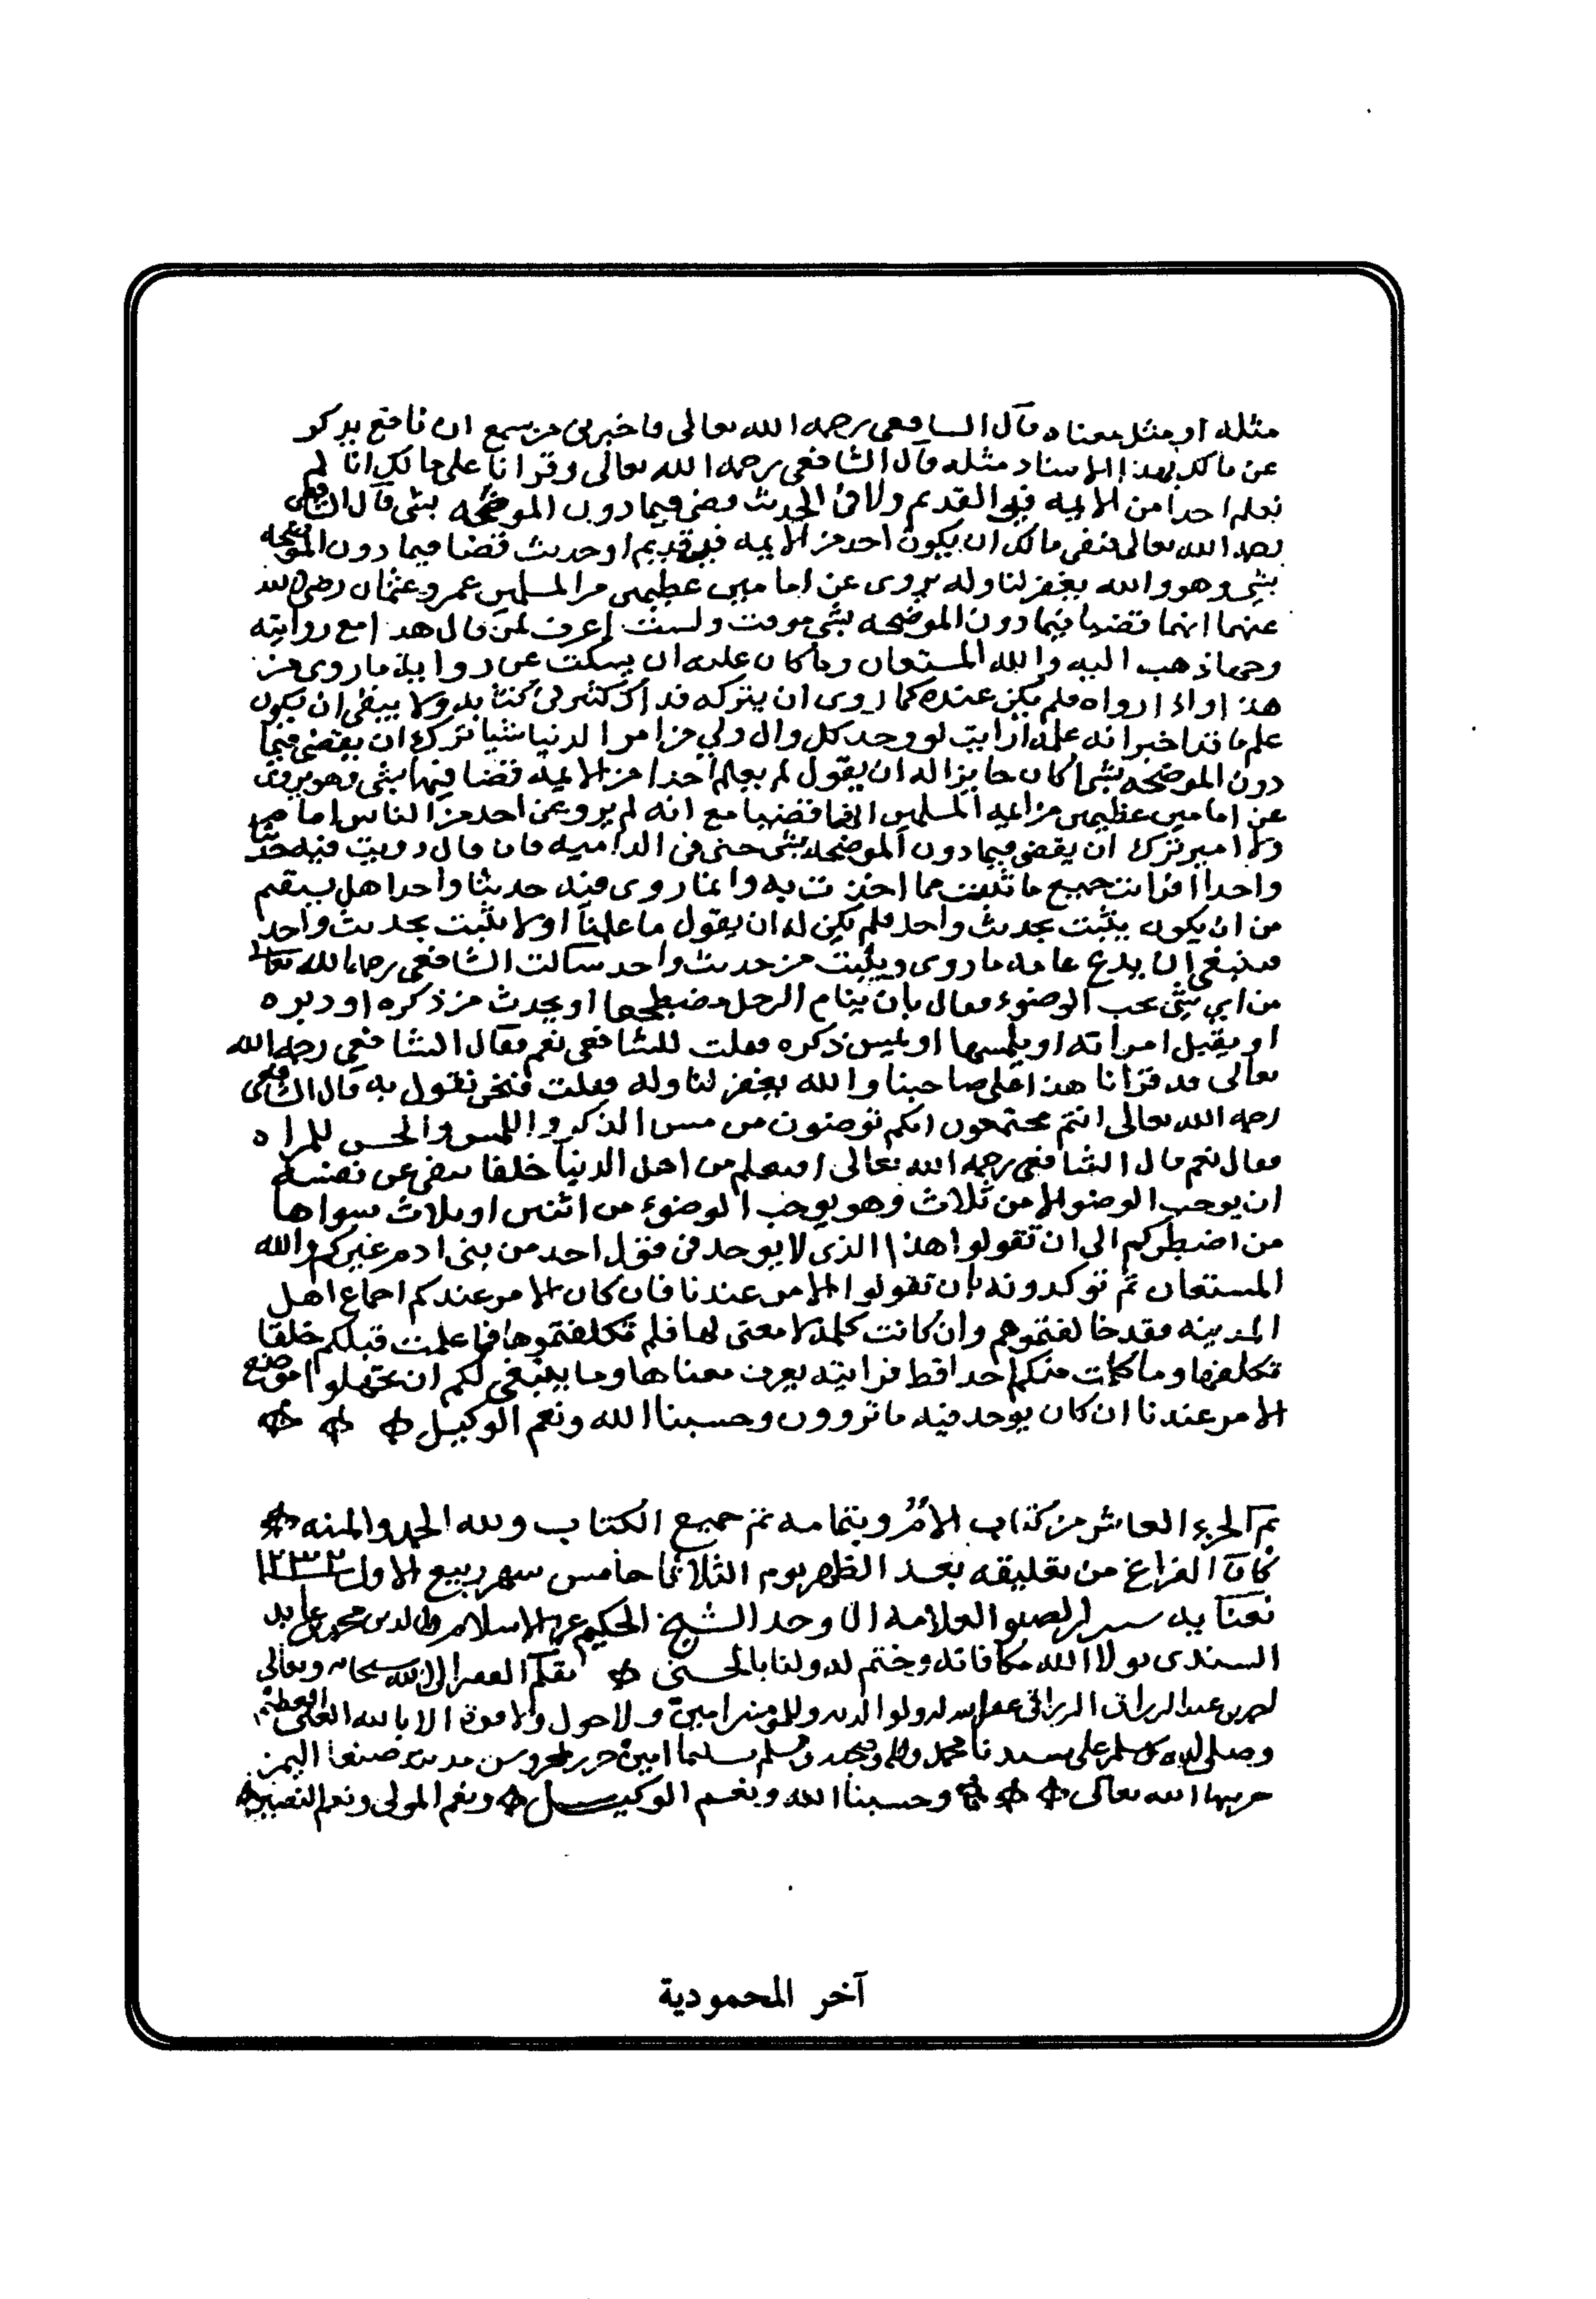 مثله او مثل معناه قال الشافعي رحمه الله تعالى فاخبرني من سمع ابن نافع يذكر
عن مالك بهذا الاسناد مثله قال الشافعي رحمه الله تعالى وقرانا على مالك انا لم
نعلم احدا من الايمه في القديم ولا في الحديث قضى فيما دون الموضحه بشي قال الشافعي
رحمه الله تعالى فنفى مالك ان يكون احد من الايمه في قديم او حديث قضا فيما دون الموضحه
بشي وهو والله يغفر لنا وله يروى عن امامين عظيمين من المسلمين عمر وعثمان رضي الله
عنهما انهما قضيا فيما دون الموضحه بشي موقت ولست اعرف لمن قال هذا مع روايته
وجها ذهب اليه والله المستعان وما كان عليه ان يسكت عن رواية ما روى من
هذا او اذا رواه فلم يكن عنده كما روى ان يتركه قد اكثر في كتابه ولا ينبغى ان يكون
علم ما قد اخبر انه علمه ارايت لو وجد كل وال ولي من امر الدنيا شيا ترك ان يقضي فيما
دون الموضحه بشي اكان جايزا له ان يقول لم يعلم احدا من الايمة قضا فيها بشي وهو يروى
عن امامين عظيمين من ايمه المسلمين انهما قضيا مع انه لم يرو عن احد من الناس امام
ولا امير ترك ان يقضي فيما دون الموضحه بشي حتى في الداميه فان قال رويت فيه حديثا
واحدا افرايت جميع ما ثبت مما اخذت به وانما روى فيه حديثا واحدا هل يستقيم
من ان يكون يثبت بحديث واحد فلم يكن له ان يقول ما علمنا او لا يثبت بحديث واحد
فينبغي ان يدع عامه ما روى ويثبت من حديث واحد سالت الشافعي رحمه الله تعالى
من اي شي يجب الوضوء فقال بان ينام الرجل مضطجعا او يحدث من ذكره او دبره
او يقبل امراته او يلمسها او يمس ذكره فقلت للشافعي نعم فقال الشافعي رحمه الله
تعالى قد قرانا هذا على صاحبنا والله يغفر لنا وله فقلت فنحن نقول به قال الشافعي
رحمه الله تعالى انتم مجتمعون انكم توضئون من مس الذكر واللمس والجس للمراه
فقال نعم قال الشافعي رحمه الله تعالى افتعلم من اهل الدنيا خلقا ينفي عن نفسه
ان يوجب الوضو الا من ثلاث وهو يوجب الوضوء من اثنين او ثلاث سواها
من اضطركم الى ان تقولوا هذا الذى لا يوجد في قول احد من بني ادم غيركم والله
المستعان ثم توكدونه بان تقولوا الامر عندنا فان كان الامر عندكم اجماع اهل
المدينه فقد خالفتموهم وان كانت كلمة لا معنى لها فلم تكلفتموها فما علمت قبلكم خلقا
تكلفها وما كلمت منكم احدا قط فرايته يعرف معناها وما ينبغي لكم ان تجهلوا موضع
الامر عندنا ان كان يوجد فيه ما تروون وحسبنا الله ونعم الوكيل
تم الجزء العاشر من كتاب الام وبتمامه تم جميع الكتاب ولله الحمد والمنه
كان الفراغ من تعليقه بعد الظهر يوم الثلاثا خامس شهر ربيع الاول ١٢٣٢
بعناية العلامة الاوحد الشيخ الحكيم عز الاسلام محمد عابد
السندى تولا الله مكافاته وختم له ولنا بالحسنى بقلم الفقير الى الله سبحانه وتعالى
عبد الرزاق غفر الله له ولوالديه وللمؤمنين امين ولا حول ولا قوة الا بالله العلي العظيم
وصلى الله وسلم على سيدنا محمد واله وصحبه وسلم تسليما امين مدينة صنعا اليمن
حرسها الله تعالى وحسبنا الله ونعم الوكيل ونعم المولى ونعم النصير
آخر المحمودية